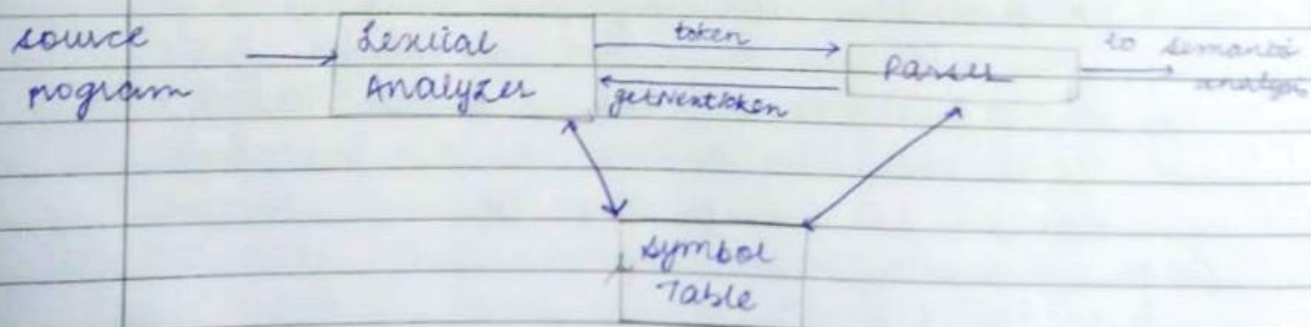 source
program
Lexical
Analyzer
token
getNexttoken
Parser
to semantic
analysis
symbol
Table